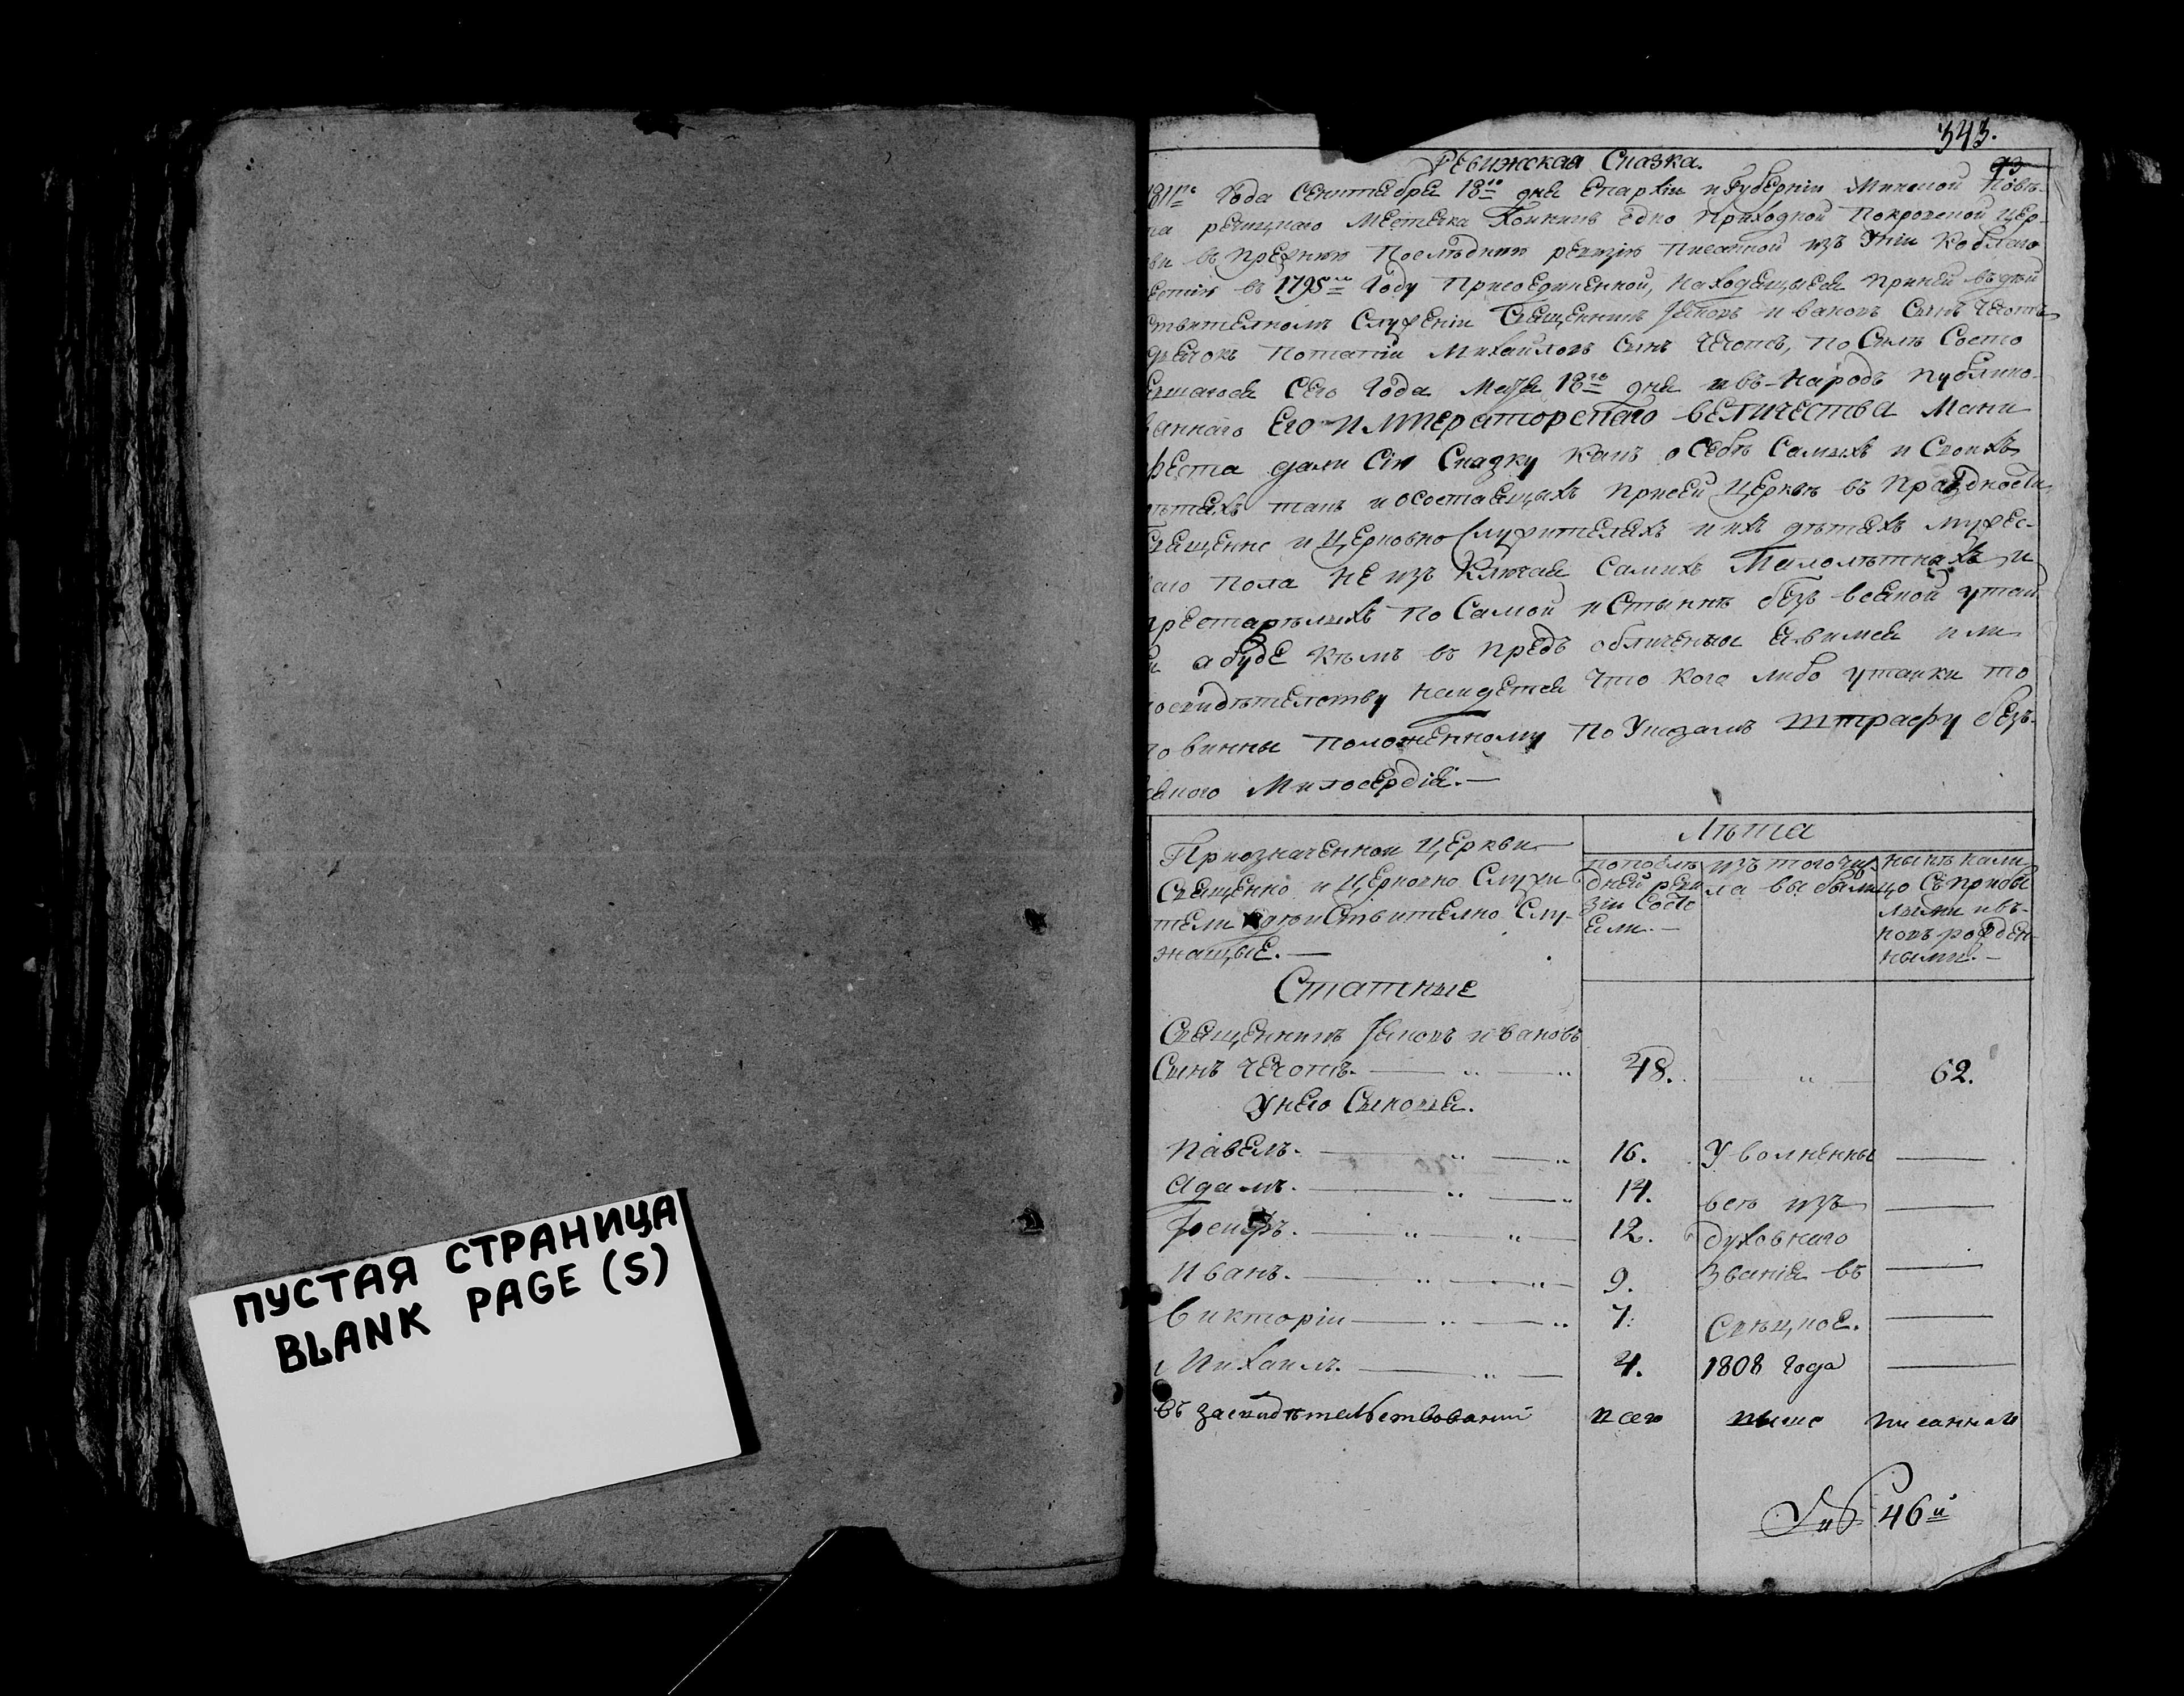 ПУСТАЯ СТРАНИЦА
BLANK PAGE (S)
343.
93
Ревижская Сказка.
1811го Года Сентебре 18го дня Епархіи и Губерніи Минской Повѣ-
та речицкаго Местечка Хойникъ одно Приходной Покровской Цер-
ви въ прежнюю Послѣднюю ревизію Писанной изъ Уніи Ко благо
естію въ 1795м Году Присоединенной, Находящыеся Приней въдѣй
ствителномъ Служеніи Священникъ Іяковъ Ивановъ Сынъ Чечотъ
дьячокъ Потапій Михайловъ Сынъ Чечотъ, По Силѣ Состо
евшагося Сего Года Маія 18го дня и въ-Народъ Публико-
ваннаго Его Императорскаго величества Мани
феста дали Сію Сказку Какъ о Себѣ Самихъ и Своихъ
дѣтяхъ такъ и осостоящыхъ Присей Церкви въ Праздности
Священно и Церковно Служителяхъ и ихъ дѣтяхъ мужес-
каго пола не изъ Ключая Самихъ Малолѣтныхъ и
престарѣлыхъ По Самой Истыннѣ безъ всякой утай
ки а буде Кѣмъ въ предъ обличены Явимся или
посвидѣтелству Найдется Что Кого либо утайки то
повинны Положенному По Указамъ Штрафу безъ-
всякого Милосердія.—
Приозначенной Церкви
Священно и Церковно Служи
тели дѣйствително Слу-
жащые.—
Лѣта
по послѣ
дней реви
зіи Состо
ели.—
изъ того чис
ла выбыли
нынѣ нали
цо Съ прибы
лыми и въ-
новь рожден-
ными.—
Статные
Священникъ Іяковъ Ивановъ
Сынъ Чечотъ. 48. 62.
У него Сыновья.
Павелъ. 16. Уволненны
Адамъ. 14. всѣ изъ
Іосифъ. 12. духовнаго
Иванъ. 9. Званія въ
Викторій 7. Свѣцкое.
и Михаилъ. 4. 1808 Года
Въ засвидѣтельствованіи всего выше писаннаго
46й